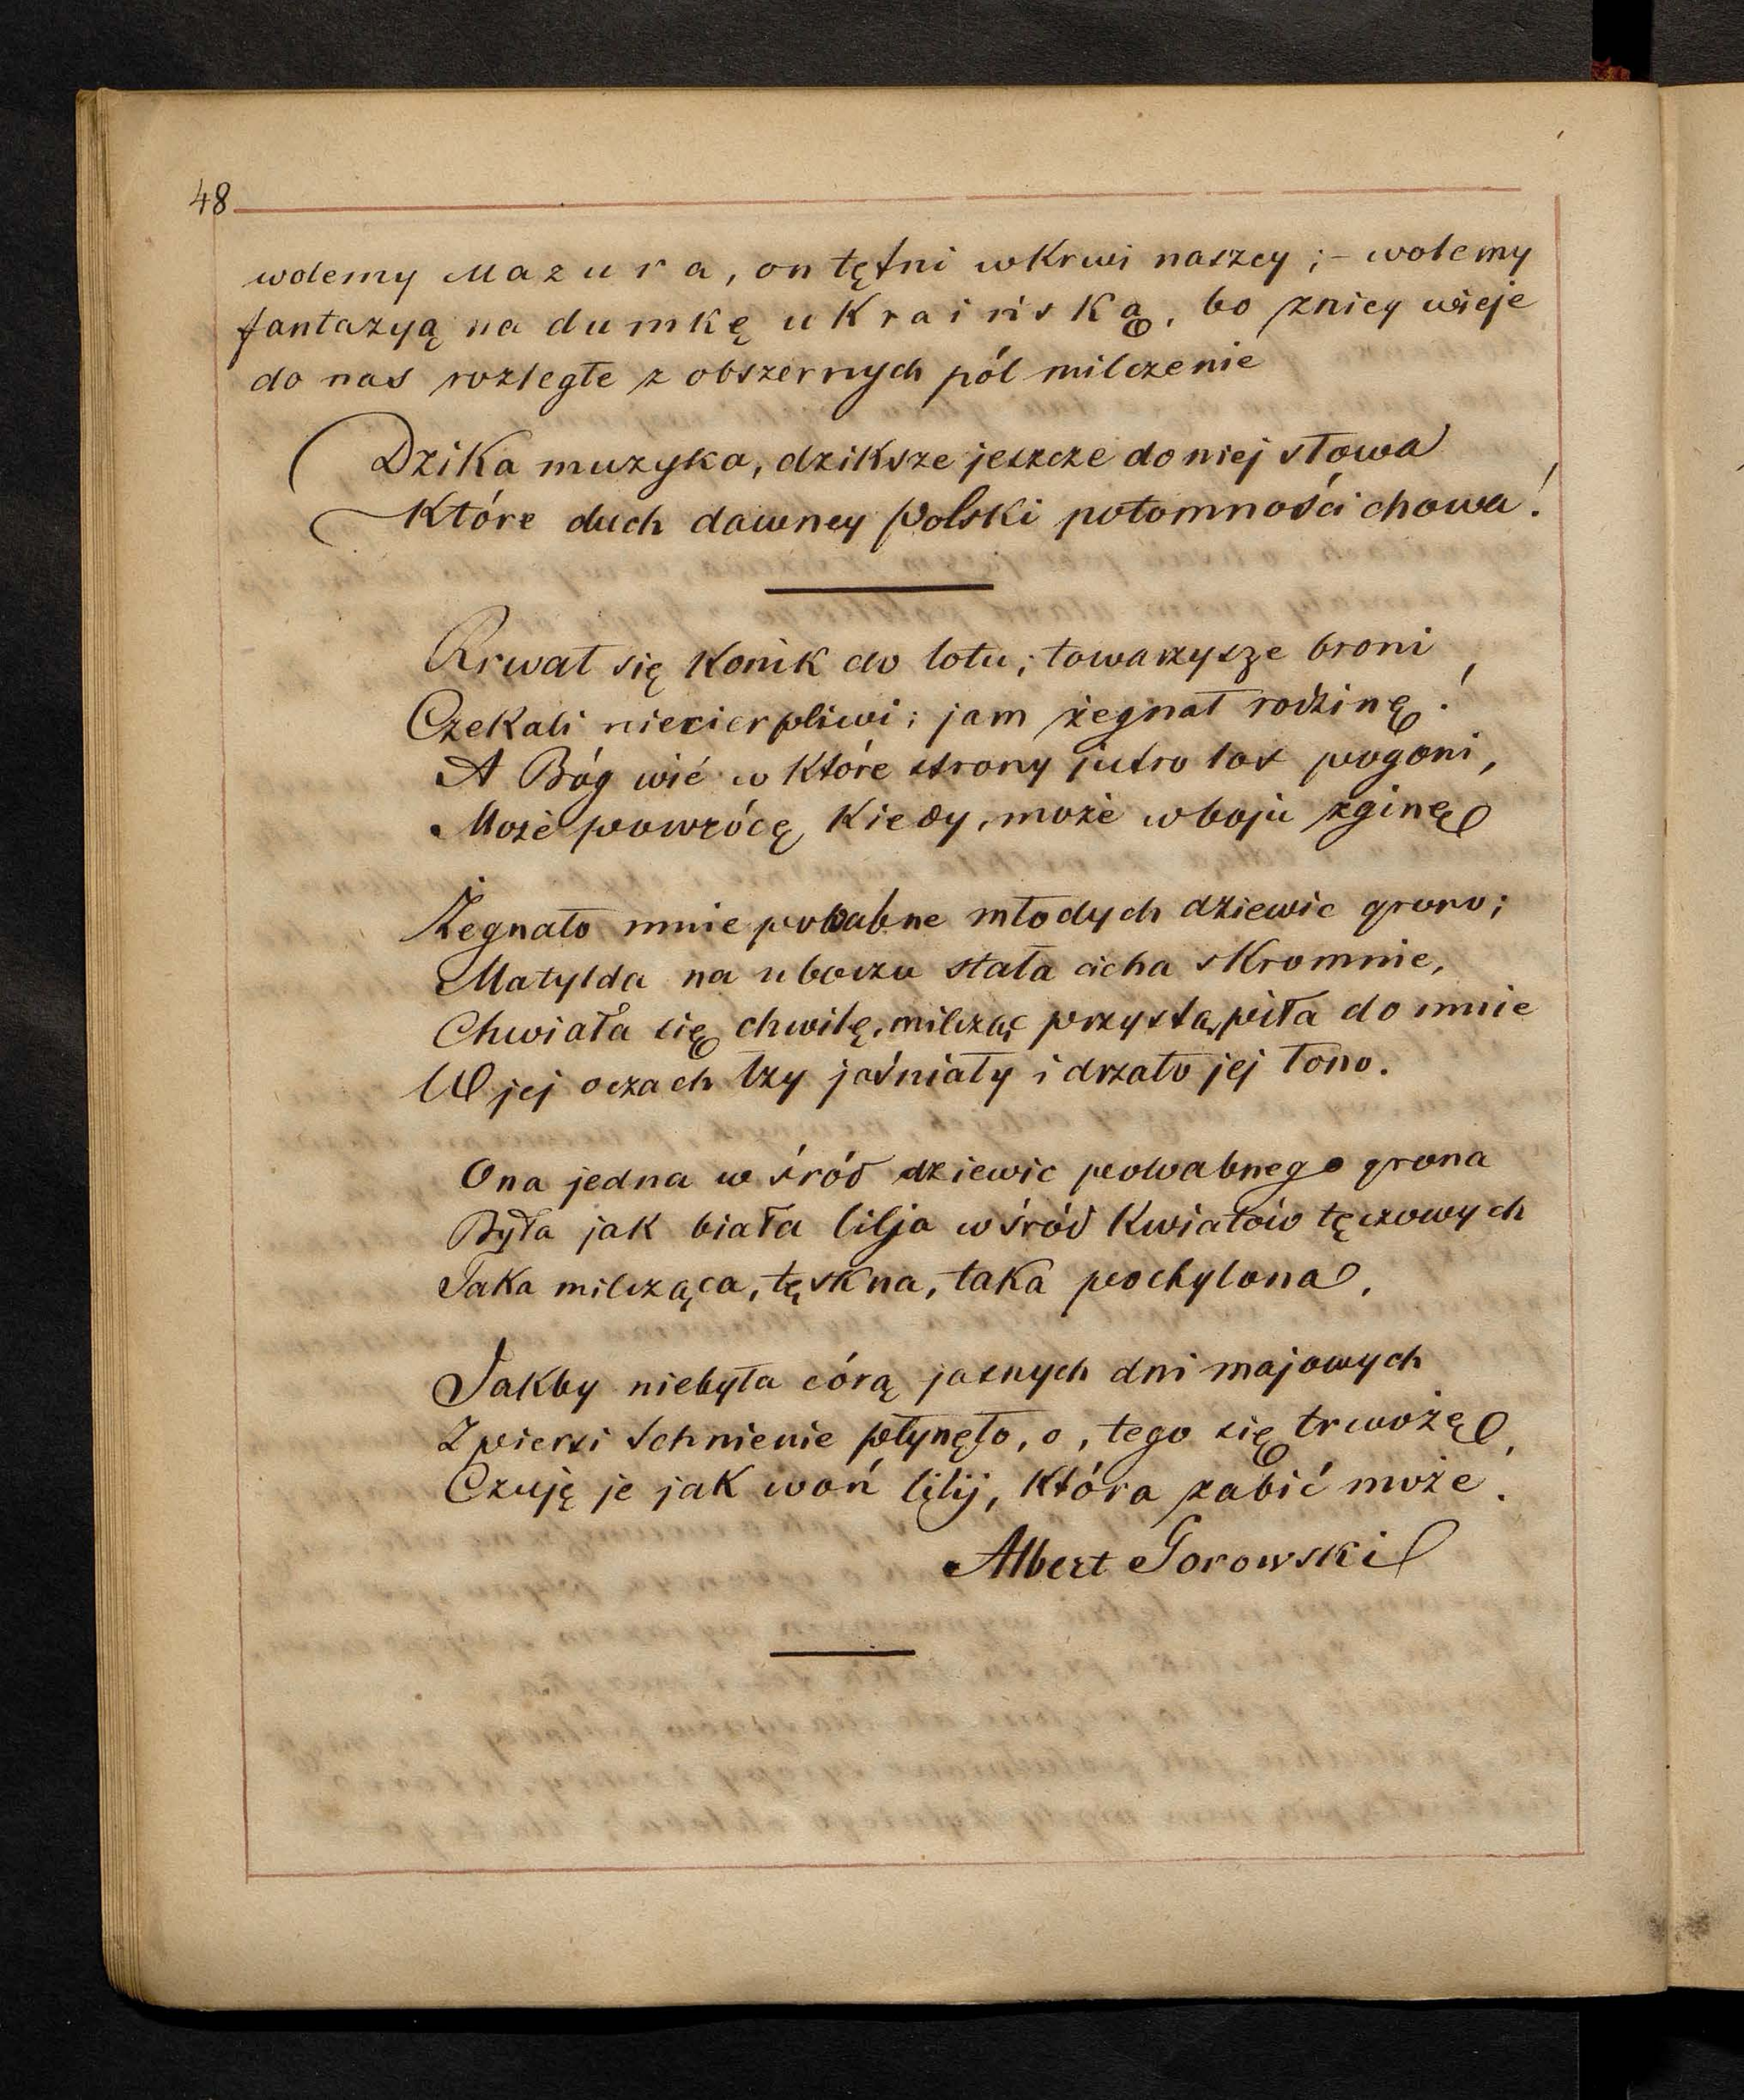 48
wolemy Mazura, on tętni wkrwi naszey; – wolemy
fantazyą na dumkę ukraińską, bo zniey wieje
do nas rozległe z obszernych pól milczenie
Dzika muzyka, dziksze jeszcze do niej słowa
Które duch dawney Polski potomności chowa!
Rrwał się Konik do lotu; towarzysze broni
Czekali niecierpliwi; jam żegnał rodzinę!
A Bóg wié w które strony jutro los pogoni,
Może powrócę kiedy, może wboju zginę
Żegnało mnie powabne młodych dziewic grono;
Matylda na uboczu stała cicha skromnie,
Chwiała się chwilę, milcząc przystąpiła do mnie
W jej oczach łzy jaśniały i drzało jej łono.
Ona jedna w śród dziewic powabnego grona
Była jak biała lilja wśród kwiatów tęczowych
Taka milcząca, tęskna, taka pochylona,
Jakby niebyła córą jasnych dni majowych
Z piersi tchnienie płynęło, o, tego się trwożę,
Czuję je jak woń lilij, która zabić może.
Albert Gorowski